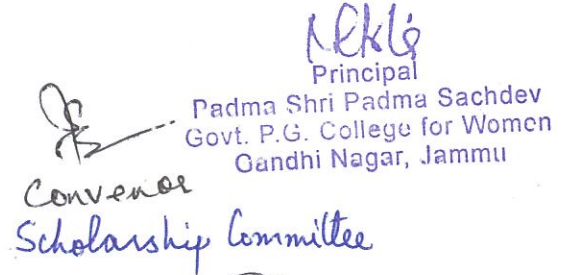 Principal
Padma Shri Padma Sachdev
Govt. P.G. College for Women
Gandhi Nagar, Jammu
Convenor
Scholarship Committee